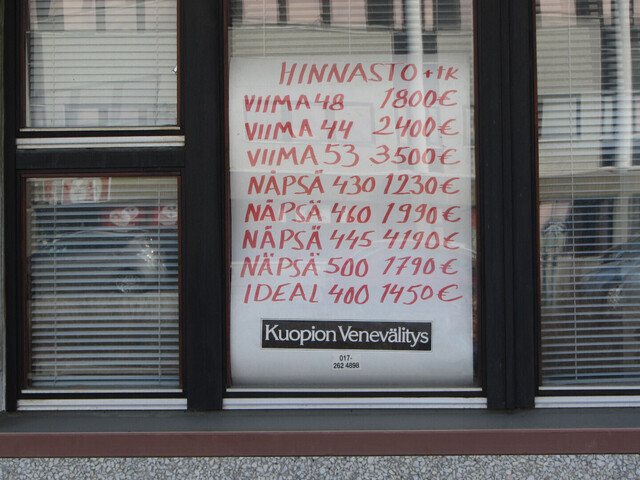 HINNASTO + IK
VIIMA 48 1800€
VIIMA 44 2400€
VIIMA 53 3500€
NÄPSÄ 430 1230€
NÄPSÄ 460 1990€
NÄPSÄ 445 4190€
NÄPSÄ 500 1790€
IDEAL 400 1450€
Kuopion Venevälitys
017-
262 4898